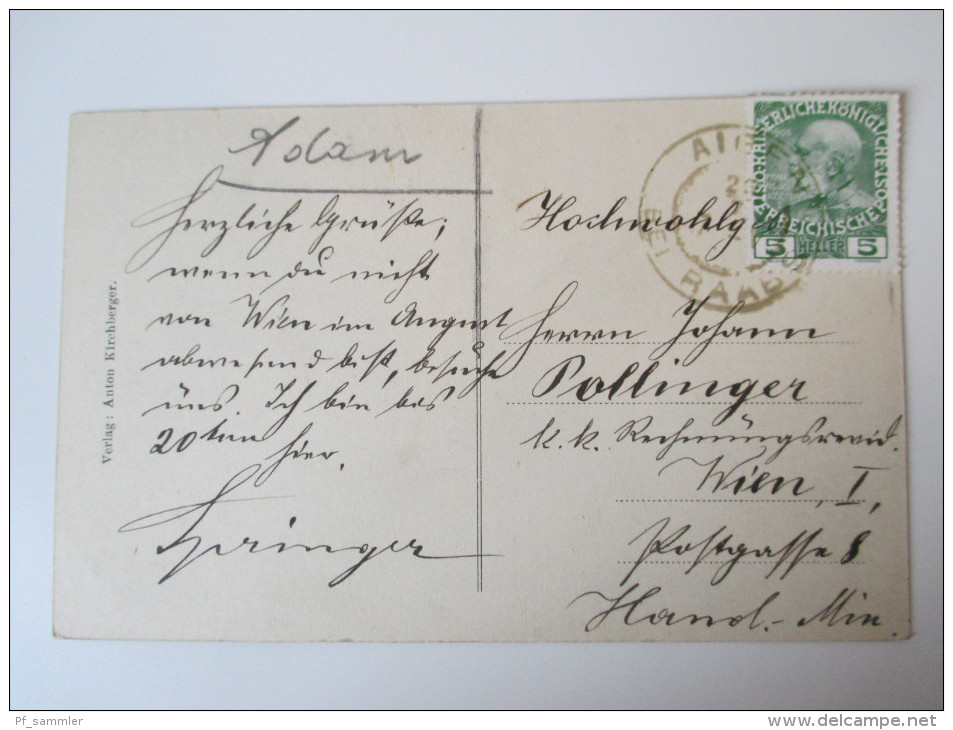 Adam
Herzliche Grüße;
wenn du nicht
von Wien im August
abwesend bist, besuche
uns. Ich bin bis
20ten hier.
Springer
Verlag: Anton Kirchberger.
Hochwohlg
Herrn Johann
Pollinger
k. k. Rechnungsrevid.
Wien, I,
Postgasse 8
Hand.- Min.
KAISERLICHE KÖNIGLICHE
ÖSTERREICHISCHE
5 HELLER 5
BEI RAAB
Pf_sammler
www.delcampe.net